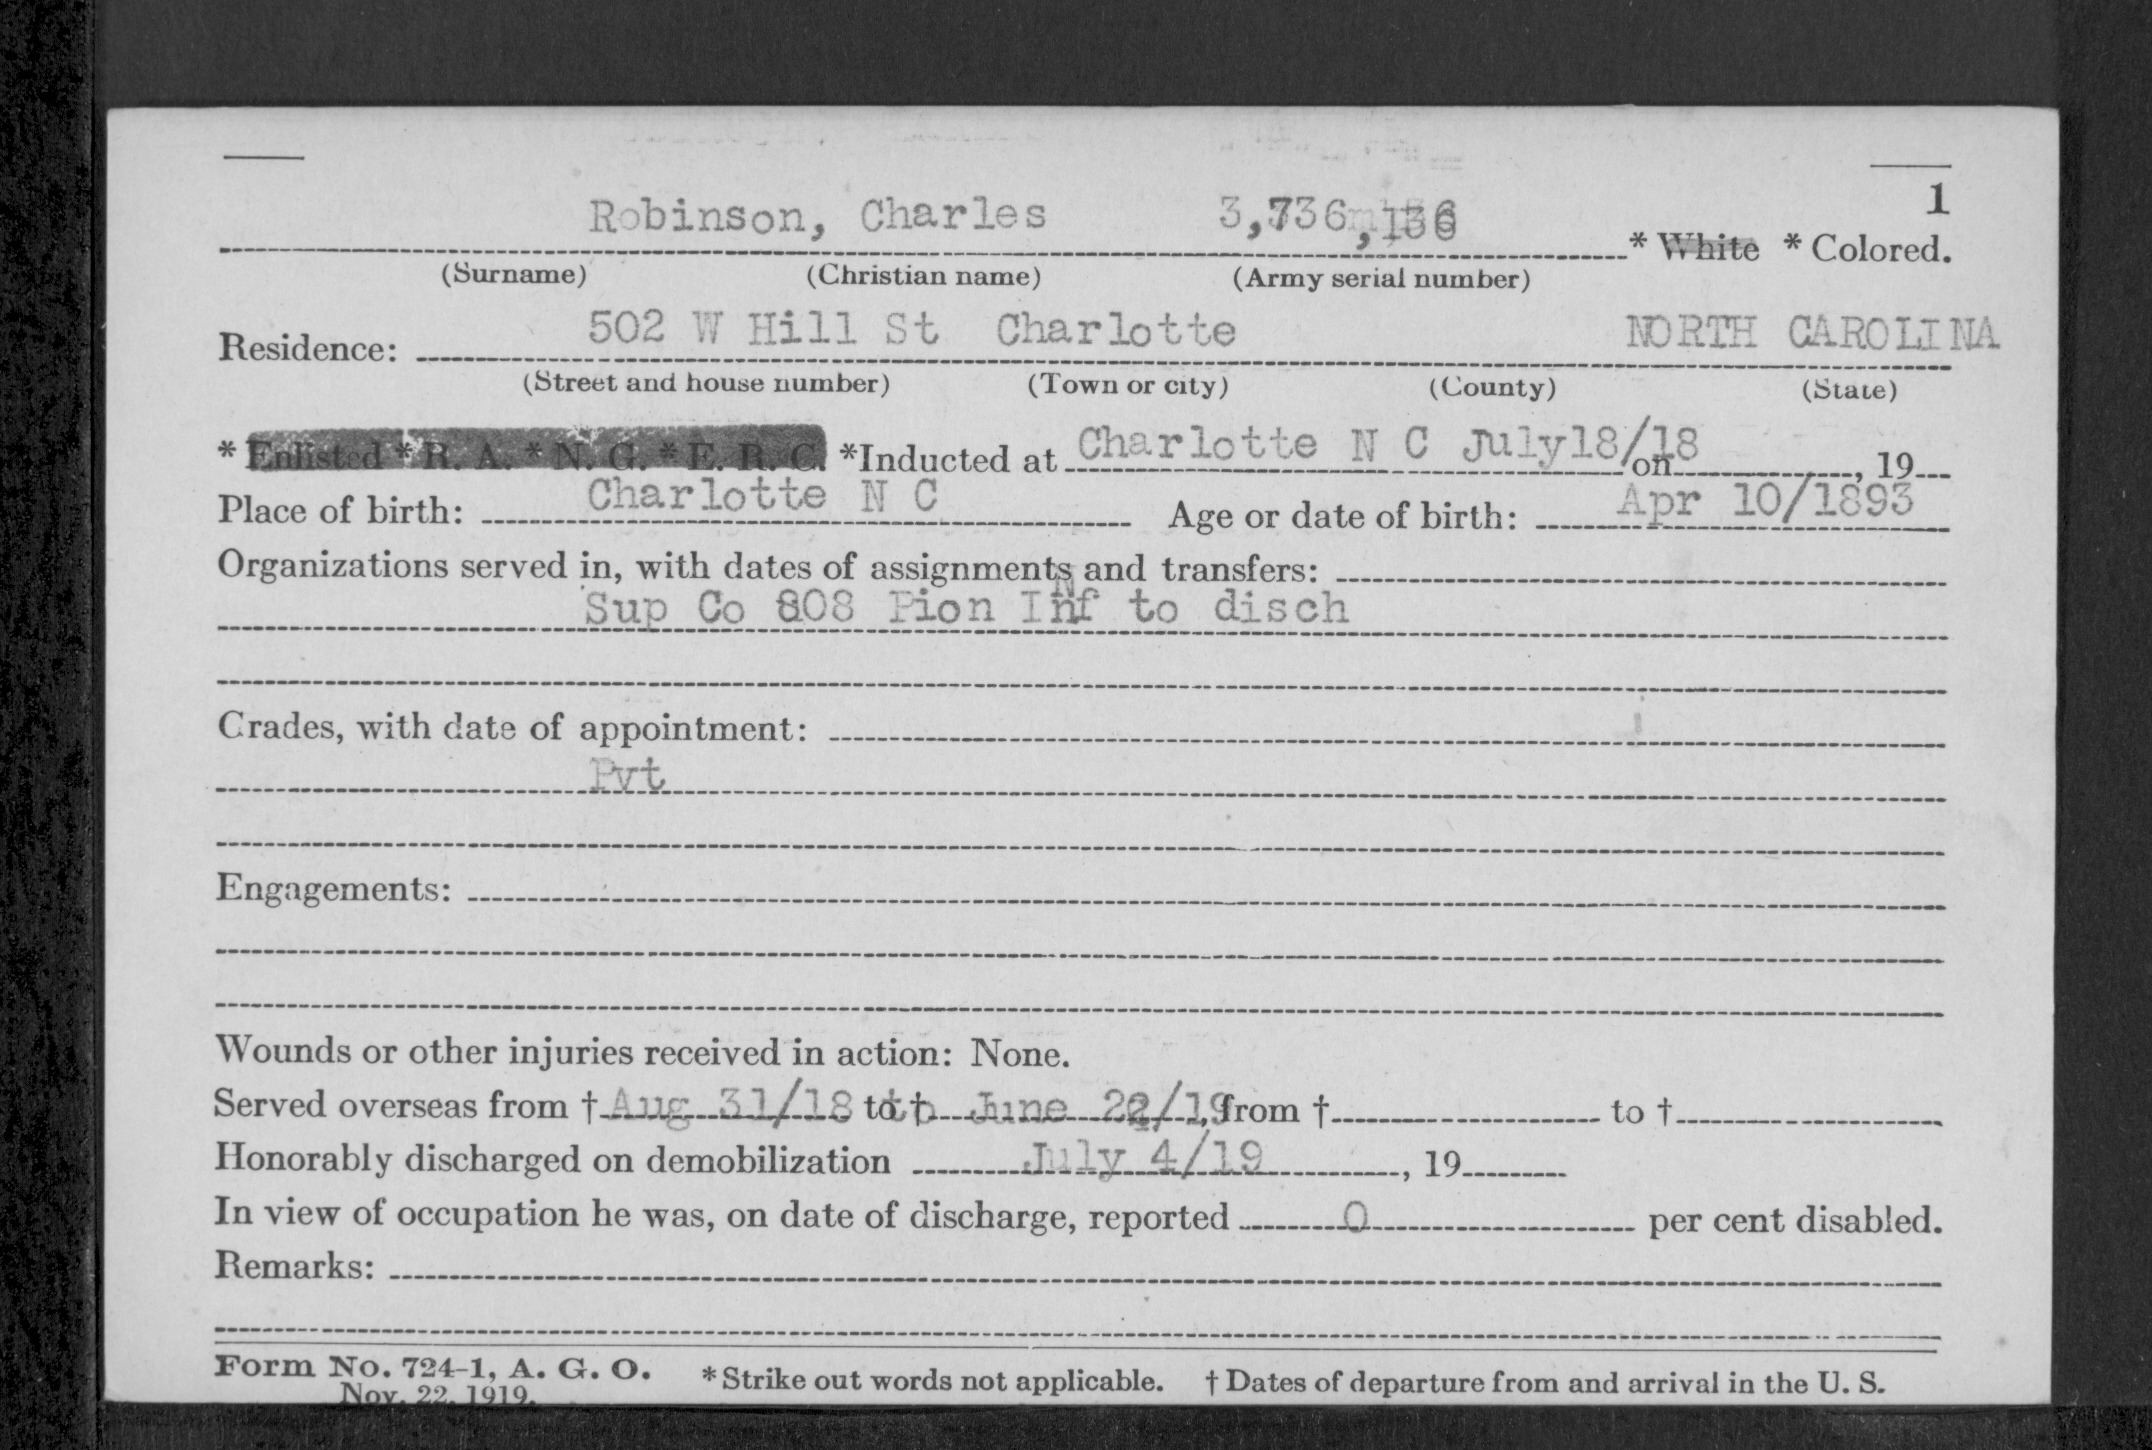 1
Robinson, Charles 3,736,136 * White * Colored.
(Surname) (Christian name) (Army serial number)
502 W Hill St Charlotte NORTH CAROLINA
Residence:
(Street and house number) (Town or city) (County) (State)
* Enlisted * R. A. * N. G. * E. R. C. *Inducted at Charlotte N C July18/18 on , 19
Place of birth: Charlotte N C Age or date of birth: Apr 10/1893
Organizations served in, with dates of assignments and transfers:
Sup Co 808 Pion Inf to disch
Grades, with date of appointment:
Pvt
Engagements:
Wounds or other injuries received in action: None.
Served overseas from † Aug 31/18 to † to June /19, from † to †
Honorably discharged on demobilization July 4/19 , 19
In view of occupation he was, on date of discharge, reported 0 per cent disabled.
Remarks:
Form No. 724-1, A. G. O. * Strike out words not applicable. † Dates of departure from and arrival in the U. S.
Nov. 22, 1919.